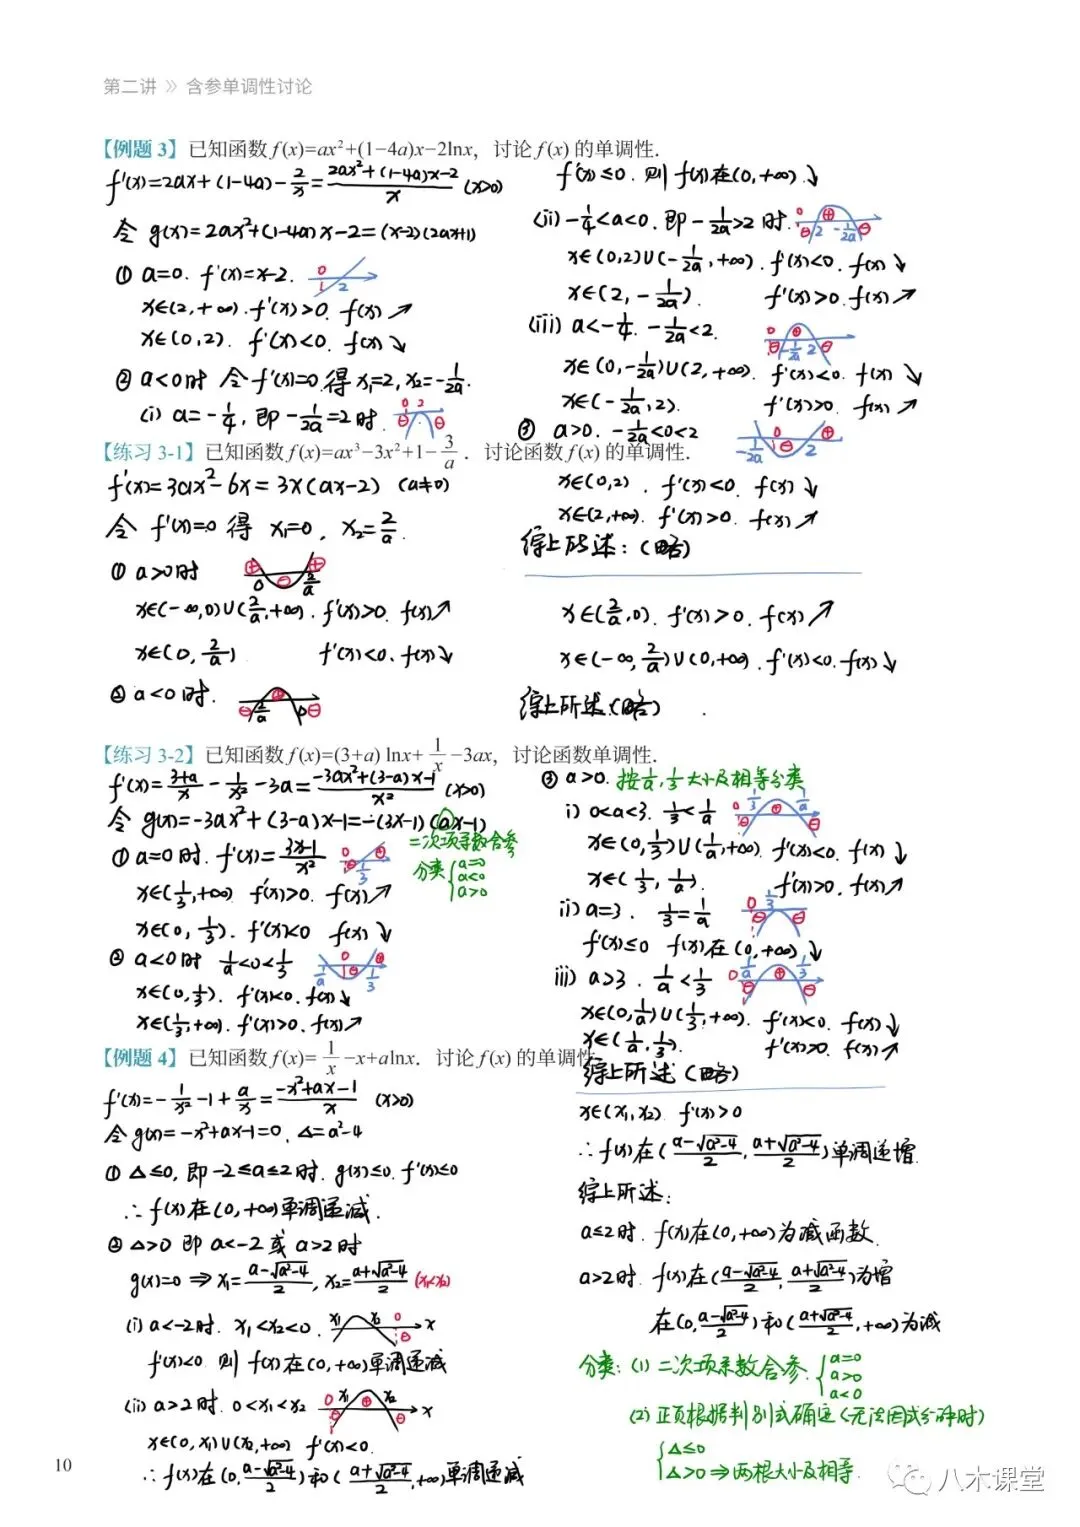 第二讲 》 含参单调性讨论
【例题 3】已知函数 f(x)=ax²+(1−4a)x−2lnx，讨论 f(x) 的单调性.
f'(x)=2ax+(1-4a)-2/x=(2ax²+(1-4a)x-2)/x (x>0)
令 g(x)=2ax²+(1-4a)x-2=(x-2)(2ax+1)
① a=0. f'(x)=x-2. 0 2
x∈(2,+∞). f'(x)>0. f(x)↗
x∈(0,2). f'(x)<0. f(x)↘
② a<0时 令f'(x)=0.得 x₁=2, x₂=-1/2a.
(i) a=-1/4, 即 -1/2a=2时. 0 2 ⊖ ⊖
f'(x)≤0. 则 f(x)在(0,+∞)↘
(ii) -1/4<a<0. 即 -1/2a>2时. 0 ⊕ ⊖ 2 -1/2a ⊖
x∈(0,2)∪(-1/2a,+∞). f'(x)<0. f(x)↘
x∈(2,-1/2a). f'(x)>0. f(x)↗
(iii) a<-1/4. -1/2a<2. 0 ⊕ ⊖ -1/2a 2 ⊖
x∈(0,-1/2a)∪(2,+∞). f'(x)<0. f(x)↘
x∈(-1/2a,2). f'(x)>0. f(x)↗
③ a>0. -1/2a<0<2 0 ⊕ -1/2a ⊖ 2
x∈(0,2). f'(x)<0. f(x)↘
x∈(2,+∞). f'(x)>0. f(x)↗
综上所述:(略)
【练习 3-1】已知函数 f(x)=ax³−3x²+1−3/a．讨论函数 f(x) 的单调性.
f'(x)=3ax²-6x=3x(ax-2) (a≠0)
令 f'(x)=0 得 x₁=0, x₂=2/a.
① a>0时 ⊕ 0 ⊖ 2/a ⊕
x∈(-∞,0)∪(2/a,+∞). f'(x)>0. f(x)↗
x∈(0,2/a) f'(x)<0. f(x)↘
② a<0时. ⊖ 2/a ⊕ 0 ⊖
x∈(2/a,0). f'(x)>0. f(x)↗
x∈(-∞,2/a)∪(0,+∞). f'(x)<0. f(x)↘
综上所述:(略)
【练习 3-2】已知函数 f(x)=(3+a) lnx+1/x−3ax，讨论函数单调性.
f'(x)=(3+a)/x-1/x²-3a=(-3ax²+(3-a)x-1)/x² (x>0)
令 g(x)=-3ax²+(3-a)x-1=-(3x-1)(ax-1)
二次项系数含参
分类{a=0 a<0 a>0
① a=0时. f'(x)=(3x-1)/x² 0 ⊕ ⊖ 1/3
x∈(1/3,+∞) f'(x)>0. f(x)↗
x∈(0,1/3). f'(x)<0 f(x)↘
② a<0时 1/a<0<1/3 0 ⊕ 1/a ⊖ 1/3
x∈(0,1/3). f'(x)<0. f(x)↘
x∈(1/3,+∞). f'(x)>0. f(x)↗
③ a>0. 按1/a,1/3大小及相等分类
i) 0<a<3. 1/3<1/a 0 1/3 1/a ⊖ ⊕ ⊖
x∈(0,1/3)∪(1/a,+∞). f'(x)<0. f(x)↘
x∈(1/3,1/a). f'(x)>0. f(x)↗
ii) a=3. 1/3=1/a 0 1/3 ⊖ ⊖
f'(x)≤0 f(x)在(0,+∞)↘
iii) a>3. 1/a<1/3 0 1/a 1/3 ⊖ ⊕ ⊖
x∈(0,1/a)∪(1/3,+∞). f'(x)<0. f(x)↘
x∈(1/a,1/3). f'(x)>0. f(x)↗
综上所述(略)
【例题 4】已知函数 f(x)=1/x−x+alnx．讨论 f(x) 的单调性
f'(x)=-1/x²-1+a/x=(-x²+ax-1)/x (x>0)
令 g(x)=-x²+ax-1=0. Δ=a²-4
① Δ≤0, 即 -2≤a≤2时. g(x)≤0. f'(x)≤0
∴ f(x)在(0,+∞)单调递减.
② Δ>0 即 a<-2 或 a>2时
g(x)=0 ⇒ x₁=(a-√(a²-4))/2, x₂=(a+√(a²-4))/2 (x₁<x₂)
(i) a<-2时. x₁<x₂<0. x₁ x₂ 0 ⊖ x
f'(x)<0. 则 f(x)在(0,+∞)单调递减
(ii) a>2时. 0<x₁<x₂ 0 x₁ ⊕ x₂ ⊖ ⊖ x
x∈(0,x₁)∪(x₂,+∞) f'(x)<0.
∴ f(x)在(0,(a-√(a²-4))/2)和((a+√(a²-4))/2,+∞)单调递减
x∈(x₁,x₂) f'(x)>0
∴ f(x)在((a-√(a²-4))/2,(a+√(a²-4))/2)单调递增.
综上所述:
a≤2时. f(x)在(0,+∞)为减函数.
a>2时. f(x)在((a-√(a²-4))/2,(a+√(a²-4))/2)为增
在(0,(a-√(a²-4))/2)和((a+√(a²-4))/2,+∞)为减
分类:(1) 二次项系数含参.{a=0 a>0 a<0
(2) 正负根据判别式确定(无法因式分解时)
{Δ≤0
Δ>0 ⇒ 两根大小及相等.
10
八木课堂